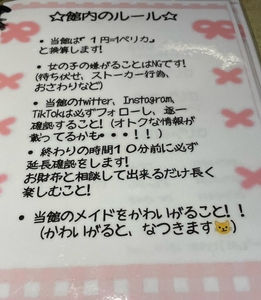 ☆館内のルール☆
・当館は『1円=1ペリカ』
と換算します!
・女の子の嫌がることはNGです!
(待ち伏せ、ストーカー行為、
おさわりなど)
・当館のtwitter、Instagram、
TikTokは必ずフォローし、逐一
確認すること!(オトクな情報が
載ってるかも・・!!)
・終わりの時間10分前に必ず
延長確認をします!
お財布と相談して出来るだけ長く
楽しむこと!
・当館のメイドをかわいがること!!
(かわいがると、なつきます🐱)